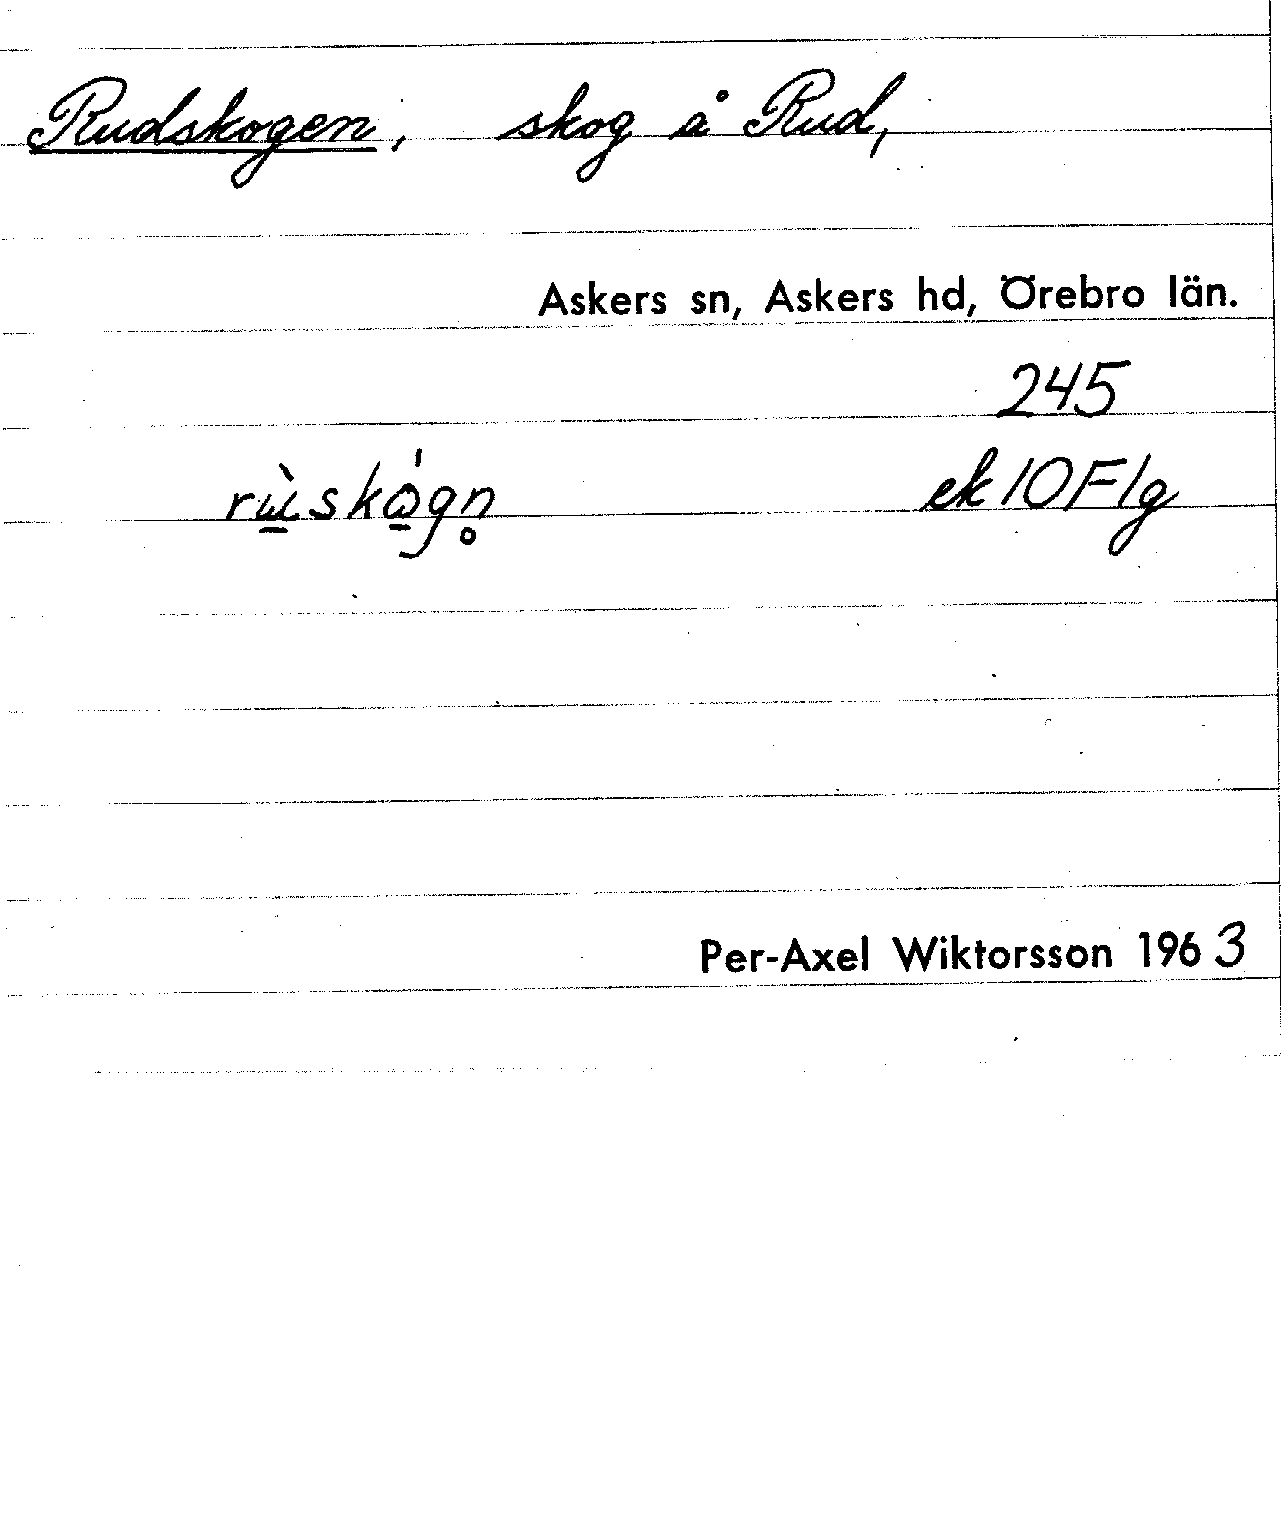 Rudskogen, skog å Rud,
Askers sn, Askers hd, Örebro län.
245
rùskógn ek 10 F 1g
Per-Axel Wiktorsson 1963